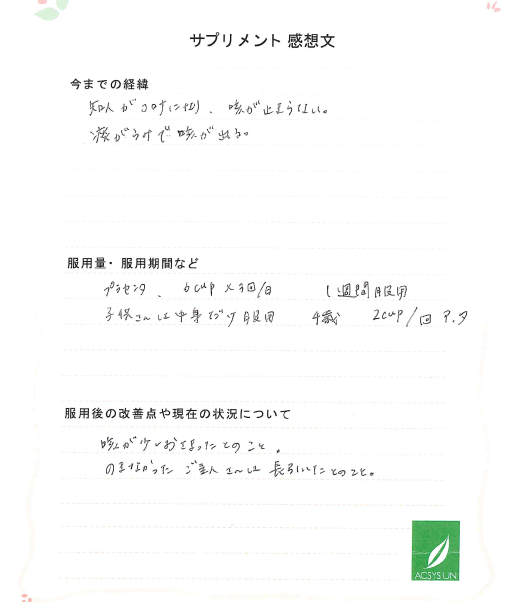 サプリメント 感想文
今までの経緯
知人がコロナになり、咳が止まらない。
痰がらみで咳が出る。
服用量・服用期間など
プラセンタ、6cup×3回/日 1週間服用
子供さんは中身だけ服用 4歳 2cup/回 ア.夕
服用後の改善点や現在の状況について
咳が少しおさまったとのこと。
のまなかったご主人さんは長引いたとのこと。
ACSYSUN